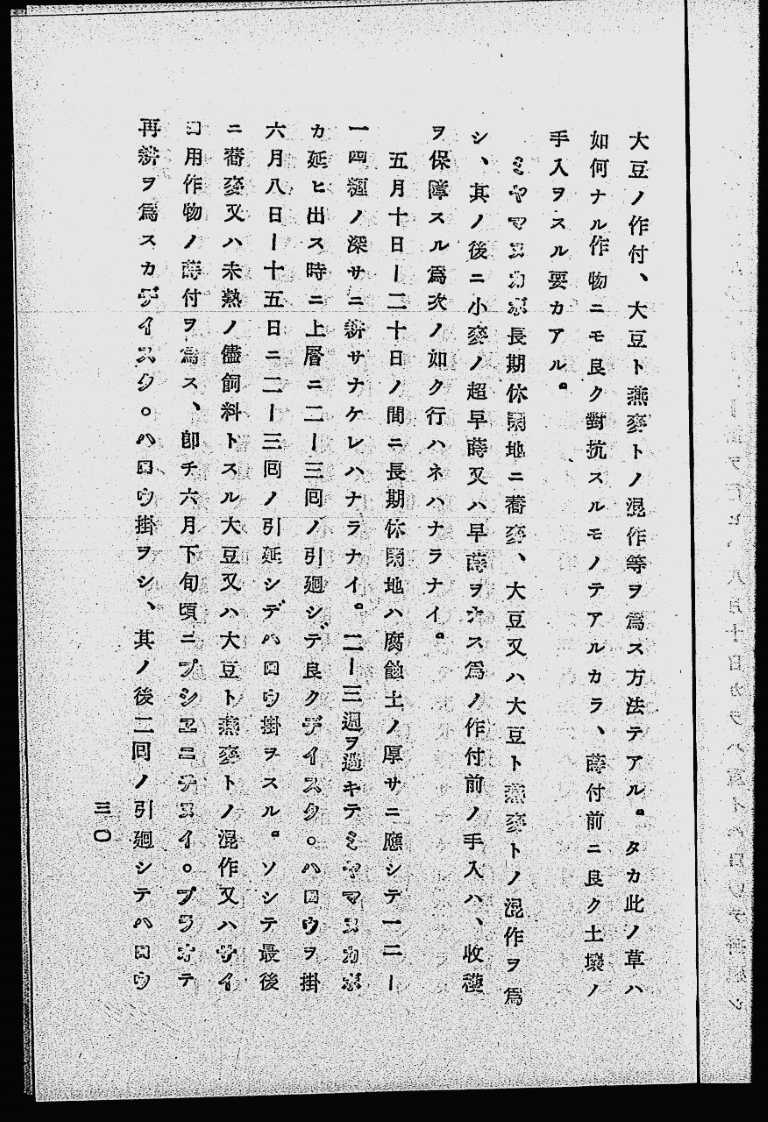 大豆ノ作付、大豆ト燕麥トノ混作等ヲ爲ス方法テアル。タカ此ノ草ハ
如何ナル作物ニモ良ク對抗スルモノテアルカラ、蒔付前ニ良ク土壤ノ
手入ヲスル要カアル。
ミヤマスカボ長期休閑地ニ蕎麥、大豆又ハ大豆ト燕麥トノ混作ヲ爲
シ、其ノ後ニ小麥ノ超早蒔又ハ早蒔ヲナス爲ノ作付前ノ手入ハ、收穫
ヲ保障スル爲次ノ如ク行ハネハナラナイ。
五月十日ー二十日ノ間ニ長期休閑地ハ腐蝕土ノ厚サニ應シテ一二ー
一四糎ノ深サニ耕サナケレハナラナイ。二ー三週ヲ過キテミヤマスカボ
カ延ヒ出ス時ニ上層ニ二ー三囘ノ引廻シデ良クデイスク。ハロウヲ掛
六月八日ー十五日ニ二ー三囘ノ引延シデハロウ掛ヲスル。ソシテ最後
ニ蕎麥又ハ未熟ノ儘飼料トスル大豆又ハ大豆ト燕麥トノ混作又ハサイ
ロ用作物ノ蒔付ヲ爲ス、卽チ六月下旬頃ニプシエニチヌイ。プラオテ
再耕ヲ爲スカデイスク。ハロウ掛ヲシ、其ノ後二囘ノ引廻シテハロウ
三〇